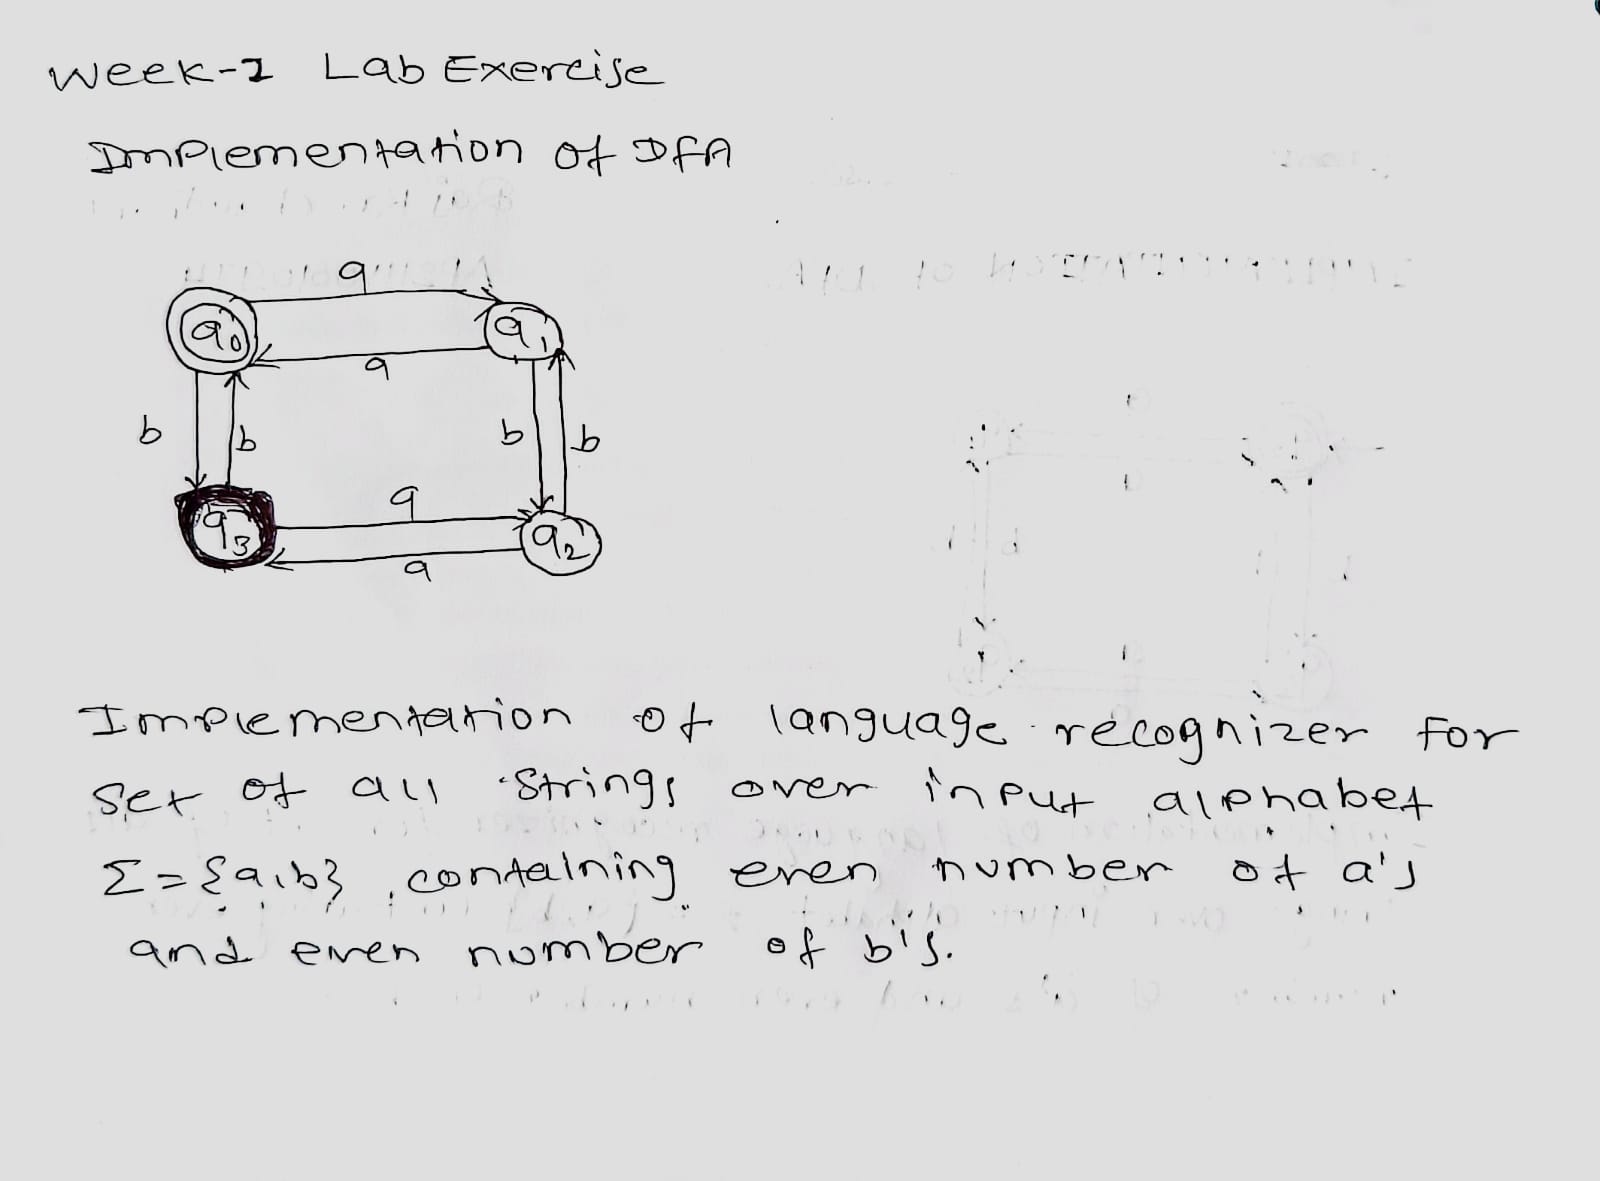 Week-1 Lab Exercise
Implementation of DFA
a
q0 q1
a
b b b b
a
q3 q2
a
Implementation of language recognizer for
set of all strings over input alphabet
Σ={a,b}, containing even number of a's
and even number of b's.